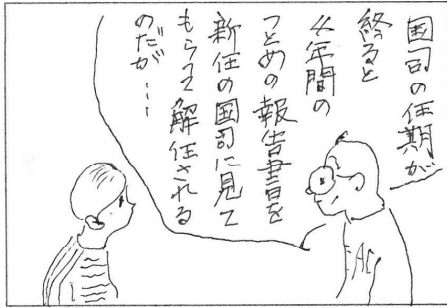 国司の任期が
終ると
4年間の
つとめの報告書を
新任の国司に見て
もらって解任される
のだが…